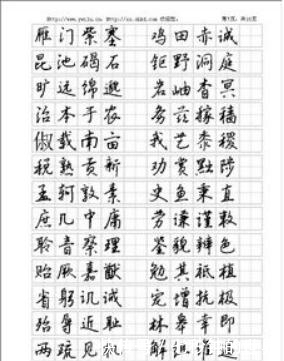 雁门紫塞 鸡田赤诚
昆池碣石 钜野洞庭
旷远绵邈 岩岫杳冥
治本于农 务兹稼穑
俶载南亩 我艺黍稷
税熟贡新 劝赏黜陟
孟轲敦素 史鱼秉直
庶几中庸 劳谦谨敕
聆音察理 鉴貌辩色
贻厥嘉猷 勉其祗植
省躬讥诫 宠增抗极
殆辱近耻 林皋幸即
两疏见 解组谁